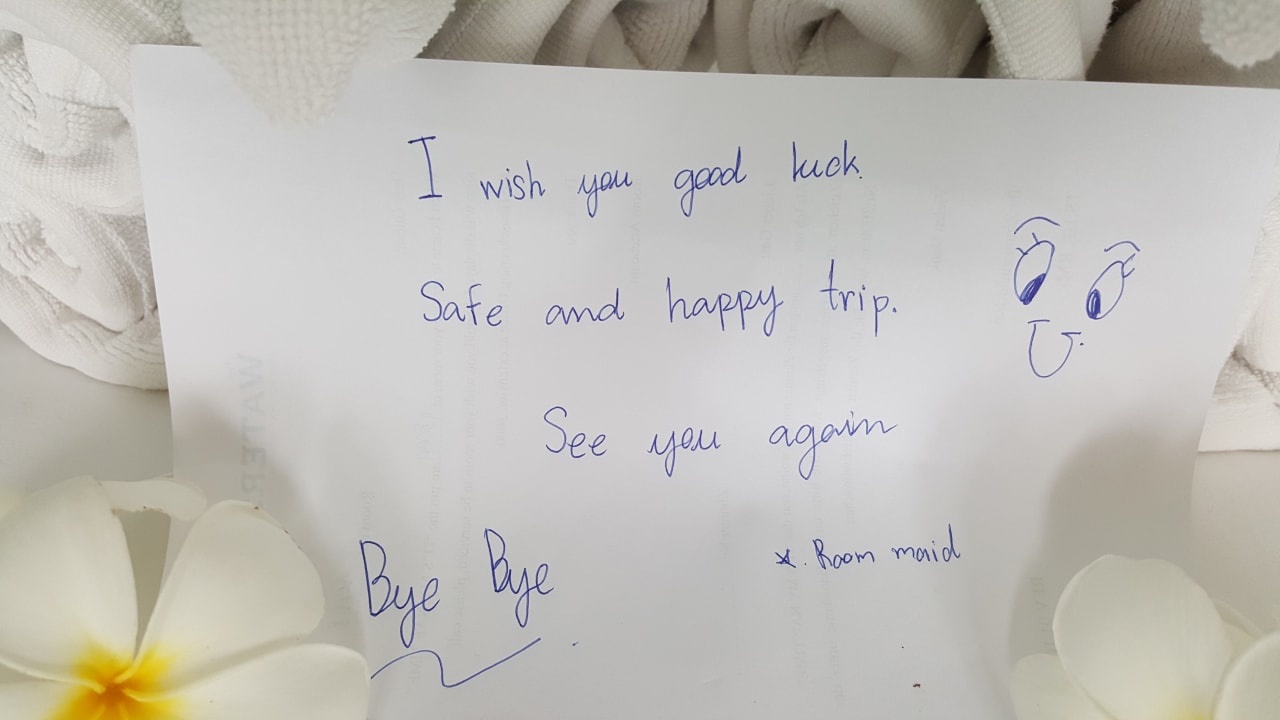 I wish you good luck.
Safe and happy trip.
See you again
Bye Bye
*. Room maid
WATER